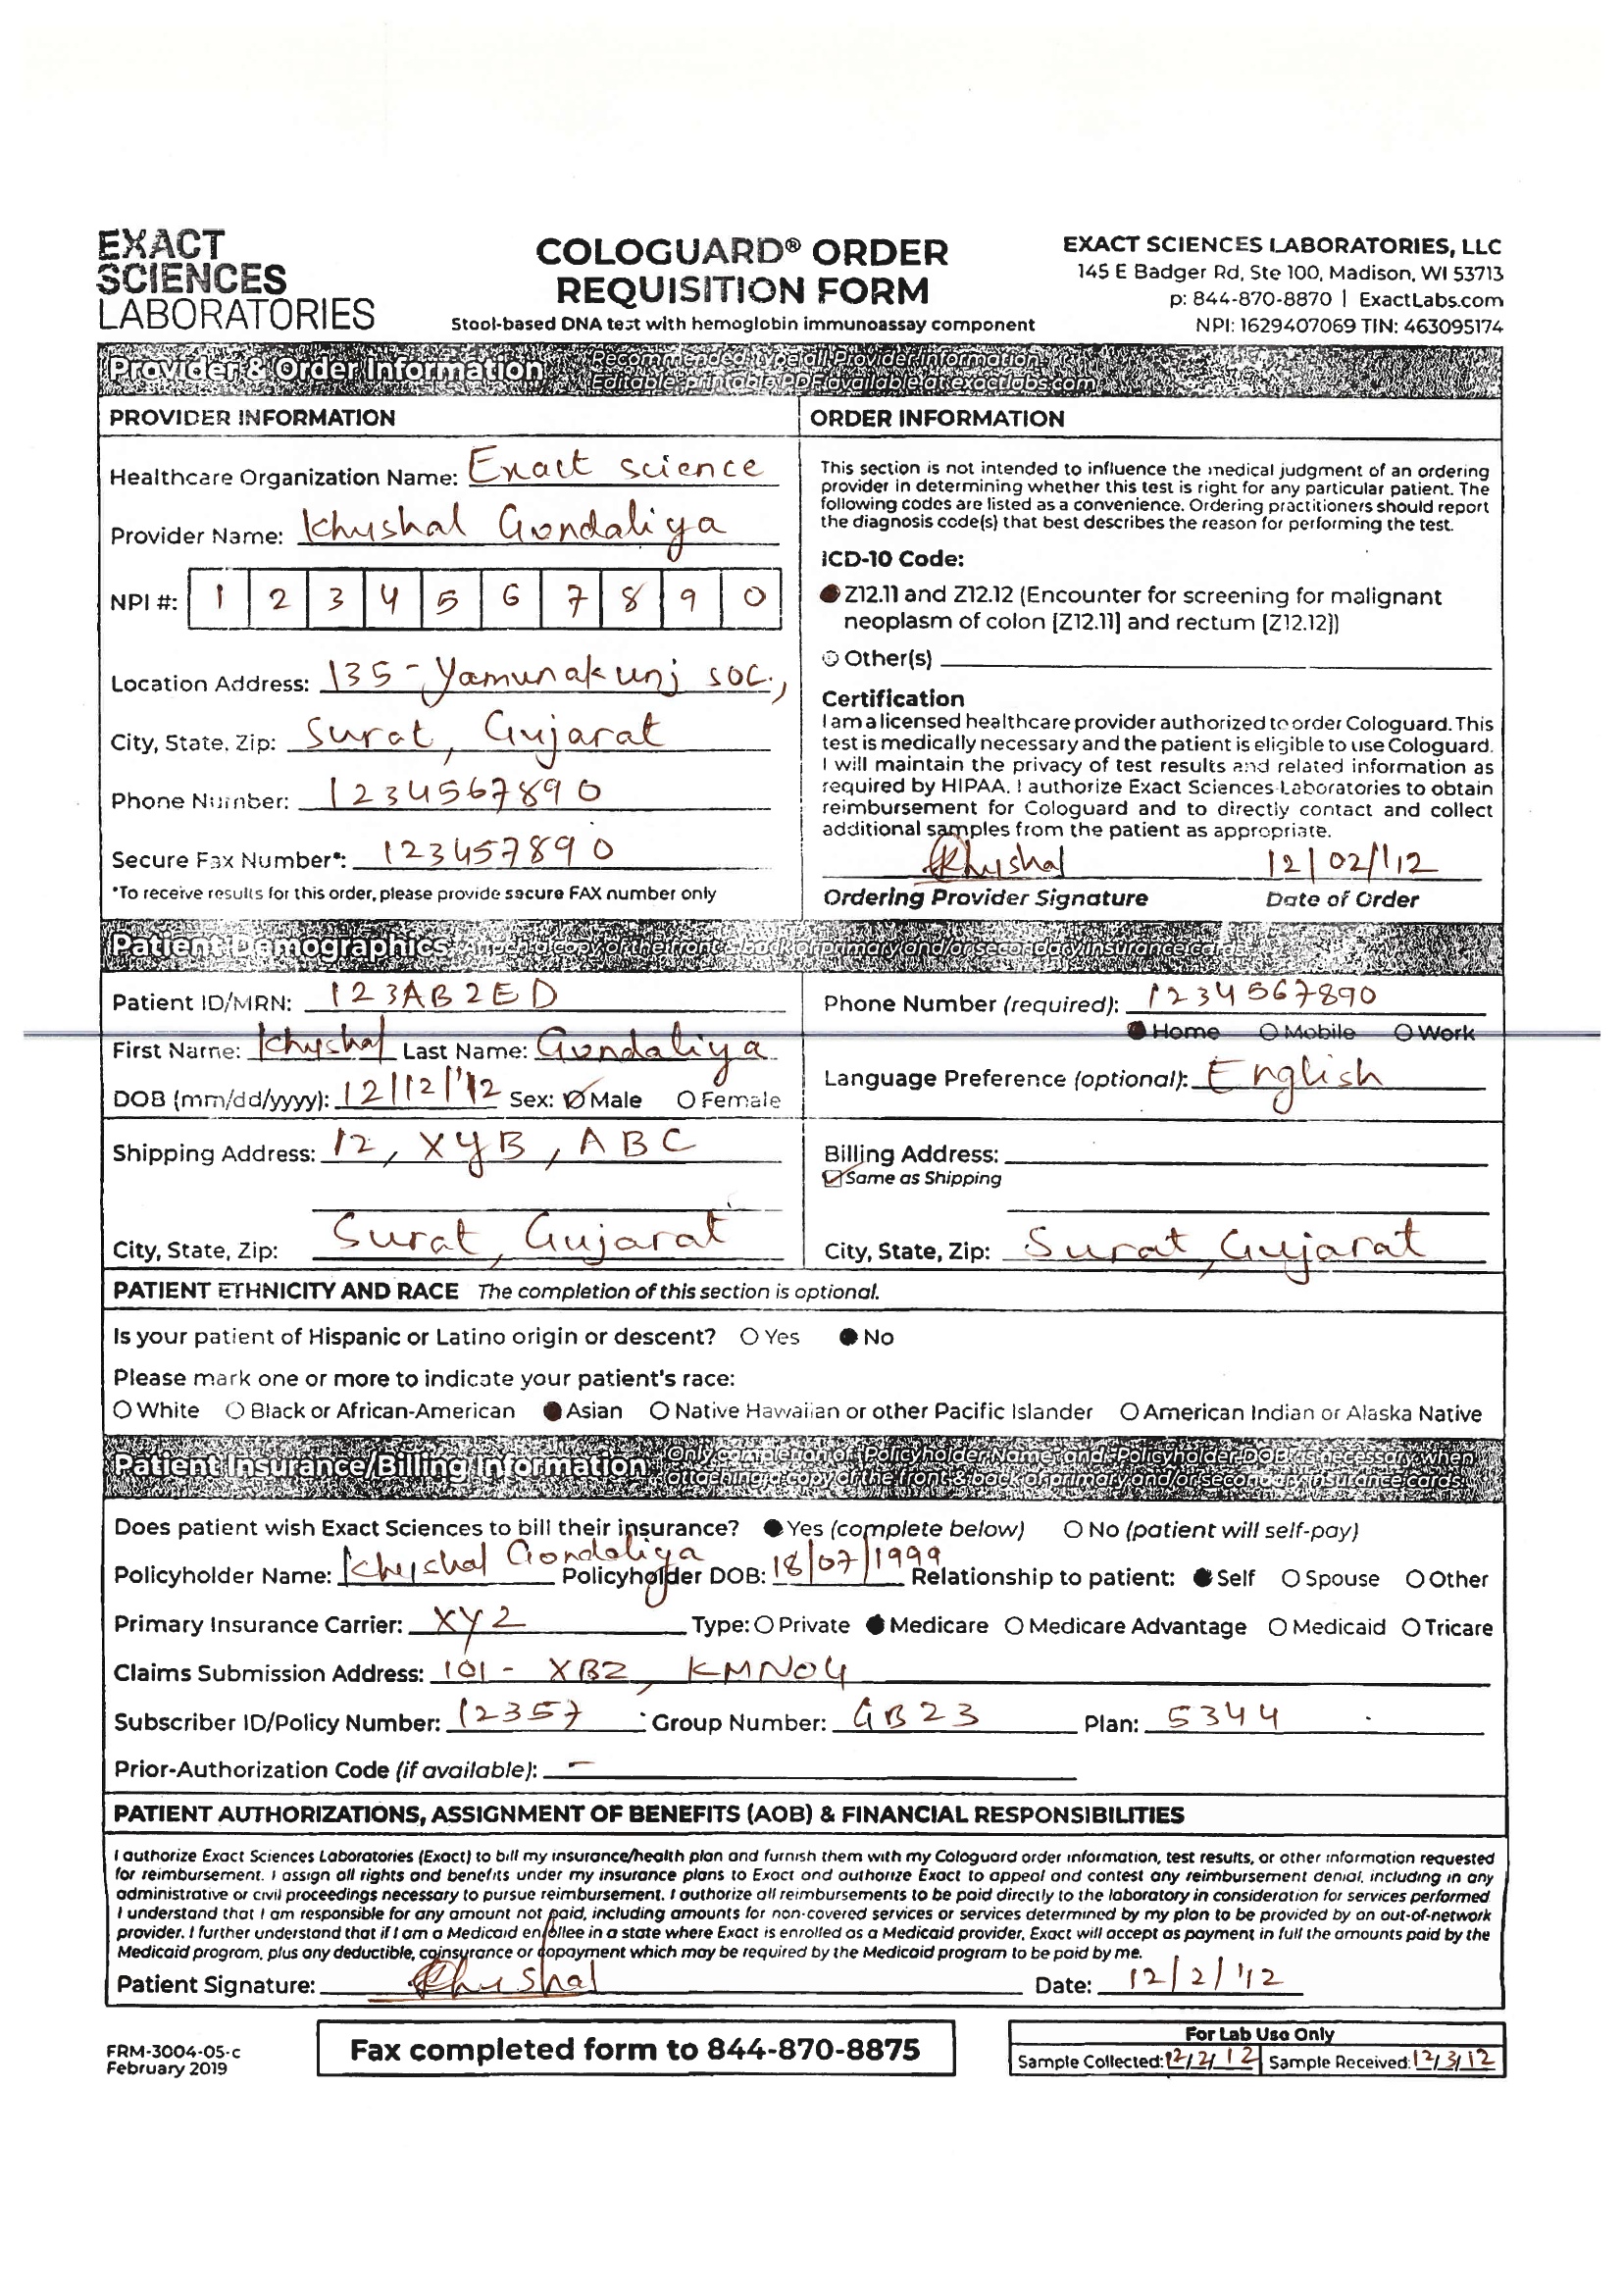 EXACT
SCIENCES
LABORATORIES
COLOGUARD® ORDER
REQUISITION FORM
Stool-based DNA test with hemoglobin immunoassay component
EXACT SCIENCES LABORATORIES, LLC
145 E Badger Rd, Ste 100, Madison, WI 53713
p: 844-870-8870 | ExactLabs.com
NPI: 1629407069 TIN: 463095174
Provider & Order Information
Recommended: type all Provider Information
Editable-printable PDF available at exactlabs.com
PROVIDER INFORMATION
Healthcare Organization Name: Exact science
Provider Name: Khushal Gondaliya
NPI #: 1 2 3 4 5 6 7 8 9 0
Location Address: 135 - Yamunakunj soc.,
City, State, Zip: Surat, Gujarat
Phone Number: 1234567890
Secure Fax Number*: 123457890
*To receive results for this order, please provide secure FAX number only
ORDER INFORMATION
This section is not intended to influence the medical judgment of an ordering
provider in determining whether this test is right for any particular patient. The
following codes are listed as a convenience. Ordering practitioners should report
the diagnosis code(s) that best describes the reason for performing the test.
ICD-10 Code:
Z12.11 and Z12.12 (Encounter for screening for malignant
neoplasm of colon [Z12.11] and rectum [Z12.12])
Other(s)
Certification
I am a licensed healthcare provider authorized to order Cologuard. This
test is medically necessary and the patient is eligible to use Cologuard.
I will maintain the privacy of test results and related information as
required by HIPAA. I authorize Exact Sciences Laboratories to obtain
reimbursement for Cologuard and to directly contact and collect
additional samples from the patient as appropriate.
Khushal 12/02/'12
Ordering Provider Signature Date of Order
Patient Demographics Attach a copy of the front & back of primary and/or secondary insurance cards
Patient ID/MRN: 123AB2ED
First Name: Khushal Last Name: Gondaliya
DOB (mm/dd/yyyy): 12/12/'12 Sex: Male Female
Phone Number (required): 1234567890
Home Mobile Work
Language Preference (optional): English
Shipping Address: 12, XYB, ABC
City, State, Zip: Surat, Gujarat
Billing Address:
Same as Shipping
City, State, Zip: Surat, Gujarat
PATIENT ETHNICITY AND RACE The completion of this section is optional.
Is your patient of Hispanic or Latino origin or descent? Yes No
Please mark one or more to indicate your patient's race:
White Black or African-American Asian Native Hawaiian or other Pacific Islander American Indian or Alaska Native
Patient Insurance/Billing Information
Only completion of Policyholder Name and Policyholder DOB is necessary when
attaching a copy of the front & back of primary and/or secondary insurance cards
Does patient wish Exact Sciences to bill their insurance? Yes (complete below) No (patient will self-pay)
Policyholder Name: Khushal Gondaliya Policyholder DOB: 18/07/1999 Relationship to patient: Self Spouse Other
Primary Insurance Carrier: XYZ Type: Private Medicare Medicare Advantage Medicaid Tricare
Claims Submission Address: 101 - XBZ, KMNO4
Subscriber ID/Policy Number: 12357 Group Number: GB23 Plan: 5344
Prior-Authorization Code (if available): -
PATIENT AUTHORIZATIONS, ASSIGNMENT OF BENEFITS (AOB) & FINANCIAL RESPONSIBILITIES
I authorize Exact Sciences Laboratories (Exact) to bill my insurance/health plan and furnish them with my Cologuard order information, test results, or other information requested
for reimbursement. I assign all rights and benefits under my insurance plans to Exact and authorize Exact to appeal and contest any reimbursement denial, including in any
administrative or civil proceedings necessary to pursue reimbursement. I authorize all reimbursements to be paid directly to the laboratory in consideration for services performed.
I understand that I am responsible for any amount not paid, including amounts for non-covered services or services determined by my plan to be provided by an out-of-network
provider. I further understand that if I am a Medicaid enrollee in a state where Exact is enrolled as a Medicaid provider, Exact will accept as payment in full the amounts paid by the
Medicaid program, plus any deductible, coinsurance or copayment which may be required by the Medicaid program to be paid by me.
Patient Signature: Khushal Date: 12/2/'12
FRM-3004-05-c
February 2019
Fax completed form to 844-870-8875
For Lab Use Only
Sample Collected: 12/2/12 Sample Received: 12/3/12